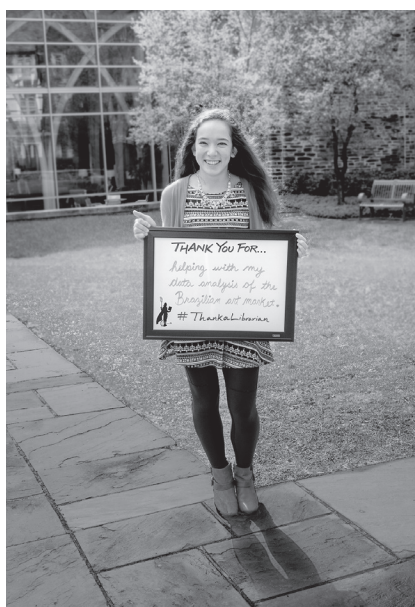 THANK YOU FOR...
helping with my
data analysis of the
Brazilian art market.
#ThankaLibrarian